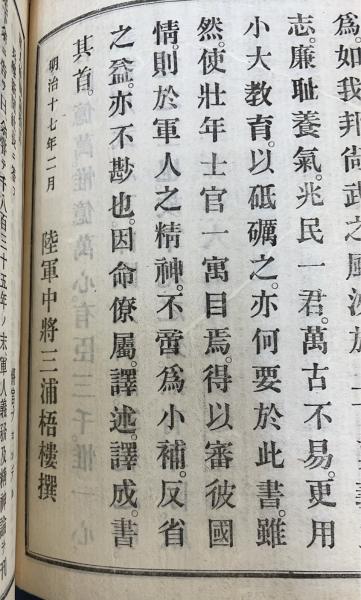 爲。如我邦尚武之風。
志。廉耻養氣。兆民一君。萬古不易。更用
小大教育。以砥礪之。亦何要於此書。雖
然。使壯年士官一寓目焉。得以審彼國
情。則於軍人之精神。不啻爲小補。反省
之益。亦不尠也。因命僚屬。譯述。譯成。書
其首。
明治十七年二月　陸軍中將三浦梧樓撰